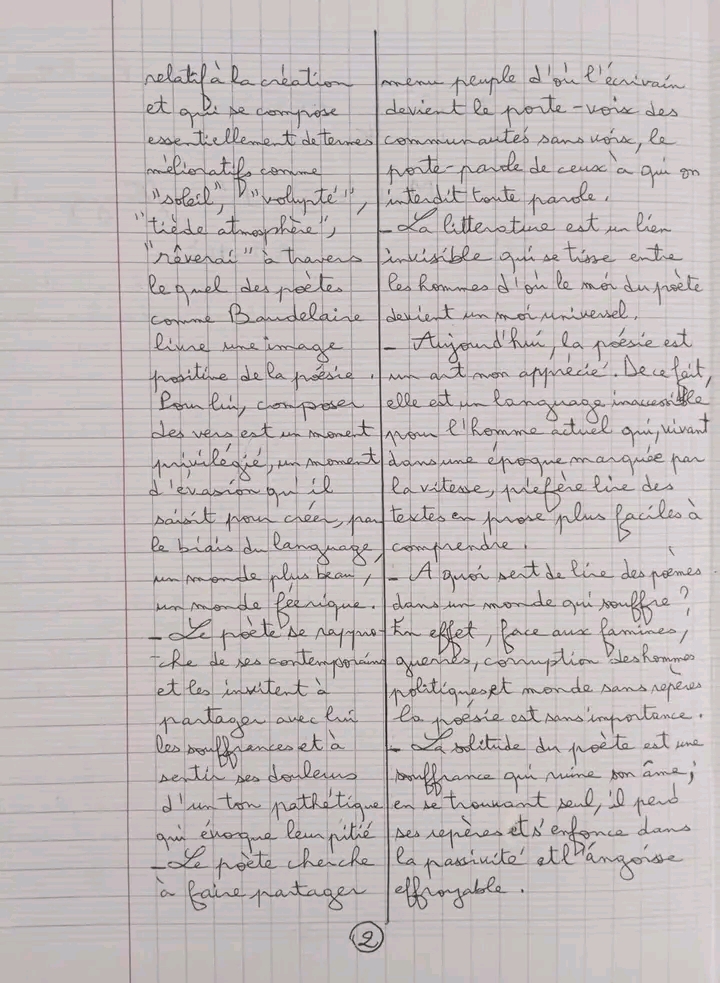 relatif à la création
et qui se compose
essentiellement de termes
mélioratifs comme
"soleil", "volupté",
"tiède atmosphère",
"rêverai" à travers
lequel des poètes
comme Baudelaire
livre une image
positive de la poésie.
Pour lui, composer
des vers est un moment
privilégié, un moment
d'évasion qu'il
saisit pour créer, par
le biais du language,
un monde plus beau,
un monde féerique.
- Le poète se rappro-
-che de ses contemporains
et les invitent à
partager avec lui
les souffrances et à
sentir ses douleurs
d'un ton pathétique
qui évoque leur pitié
- Le poète cherche
à faire partager
menu peuple d'où l'écrivain
devient le porte-voix des
communautés sans voix, le
porte-parole de ceux à qui on
interdit toute parole.
- La litterature est un lien
invisible qui se tisse entre
les hommes d'où le moi du poète
devient un moi universel.
- Aujourd'hui, la poésie est
un art non apprécié. De ce fait,
elle est un language inaccessible
pour l'homme actuel qui, vivant
dans une époque marquée par
la vitesse, préfère lire des
textes en prose plus faciles à
comprendre.
- A quoi sert de lire des poèmes
dans un monde qui souffre ?
En effet, face aux famines,
guerres, corruption des hommes
politiques et monde sans repères
la poésie est sans importance.
- La solitude du poète est une
souffrance qui ruine son âme ;
en se trouvant seul, il perd
ses repères et s'enfonce dans
la passivité et l'angoisse
effroyable.
2